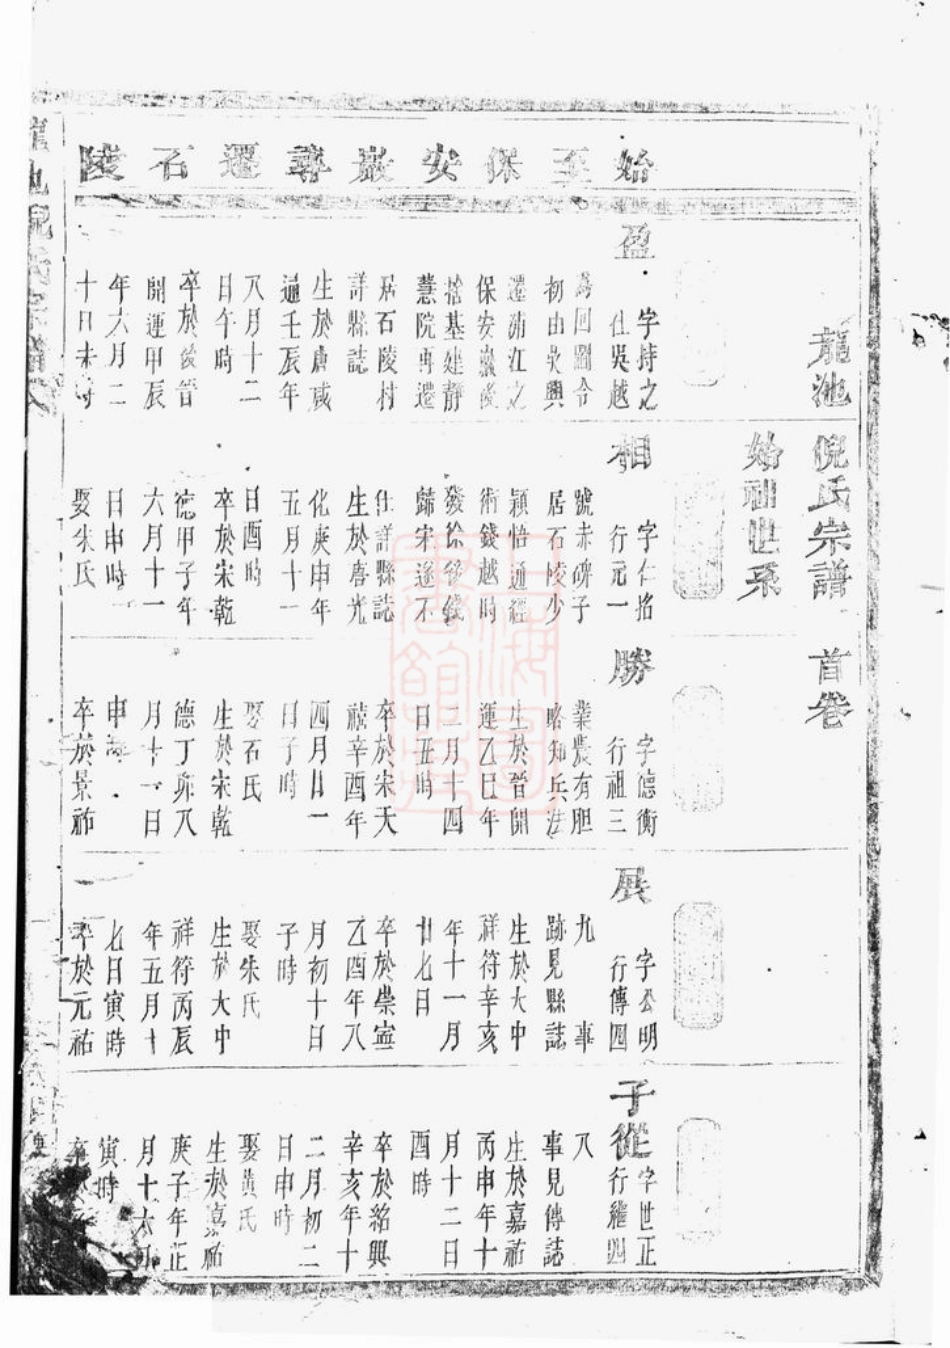 龍池 倪氏宗譜 首卷
始祖世系
始至保安巖尋遷石陵
盈
字持之
仕吳越
為回圖令
初由吳興
遷浦江之
保安巖後
捨基建靜
慧院再遷
居石陵村
詳縣誌
生於唐咸
通壬辰年
八月十二
日午時
卒於後晉
開運甲辰
年六月二
十日未時
相
字仁招
行元一
號赤碑子
居石陵少
穎悟通經
術錢越時
發徐後錢
歸宋遂不
仕詳縣誌
生於唐光
化庚申年
五月十一
日酉時
卒於宋乾
德甲子年
六月十一
日申時
娶朱氏
勝
字德衡
行祖三
業農有胆
略知兵法
生於晉開
運乙巳年
二月十四
日丑時
卒於宋天
禧辛酉年
四月廿一
日子時
娶石氏
生於宋乾
德丁卯八
月十一日
申時
卒於景祐
展
字公明
行傳四
九事
跡見縣誌
生於大中
祥符辛亥
年十一月
廿七日
卒於崇寧
乙酉年八
月初十日
子時
娶朱氏
生於大中
祥符丙辰
年五月十
七日寅時
卒於元祐
子從
字世正
行繼四
八
事見傳誌
生於嘉祐
丙申年十
月十二日
酉時
卒於紹興
辛亥年十
二月初二
日申時
娶黃氏
生於嘉祐
庚子年正
月十六日
寅時
卒
龍池倪氏宗譜